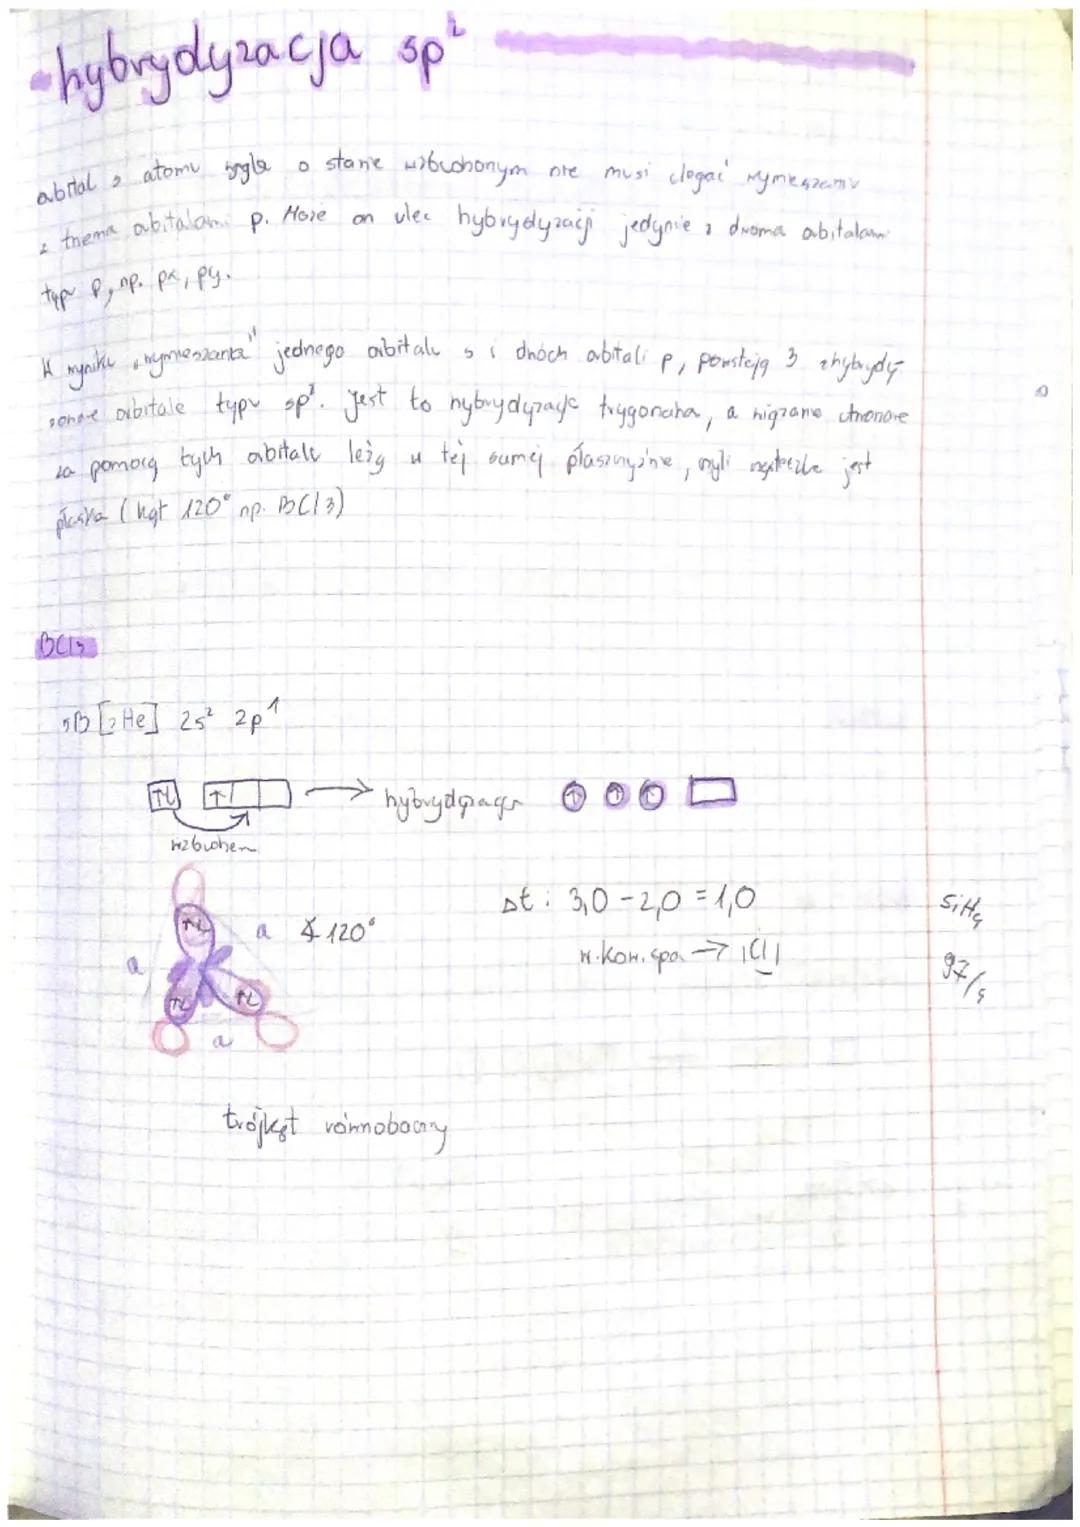 hybrydyzacja sp²
orbital s atomu węgla o stanie wzbudzonym nie musi ulegać wymieszaniu
z trzema orbitalami p. Może on ulec hybrydyzacji jedynie z dwoma orbitalami
typu p, np. px, py.
W wyniku „wymieszania" jednego orbitalu s i dwóch orbitali p, powstają 3 zhybrydy-
zowane orbitale typu sp². Jest to hybrydyzacja trygonalna, a wiązania utworzone
za pomocą tych orbitali leżą w tej samej płaszczyźnie, czyli cząsteczka jest
płaska (kąt 120° np. BCl3)
BCl3
5B [2He] 2s² 2p¹
↑↓ ↑ → hybrydyzacja ↑ ↑ ↑
wzbudzen
↑↓ a ∡ 120°
a
↑↓ ↑↓
a
Δt: 3,0 - 2,0 = 1,0
w. kow. spo. → |Cl|
SiH4
97/5
trójkąt równoboczny